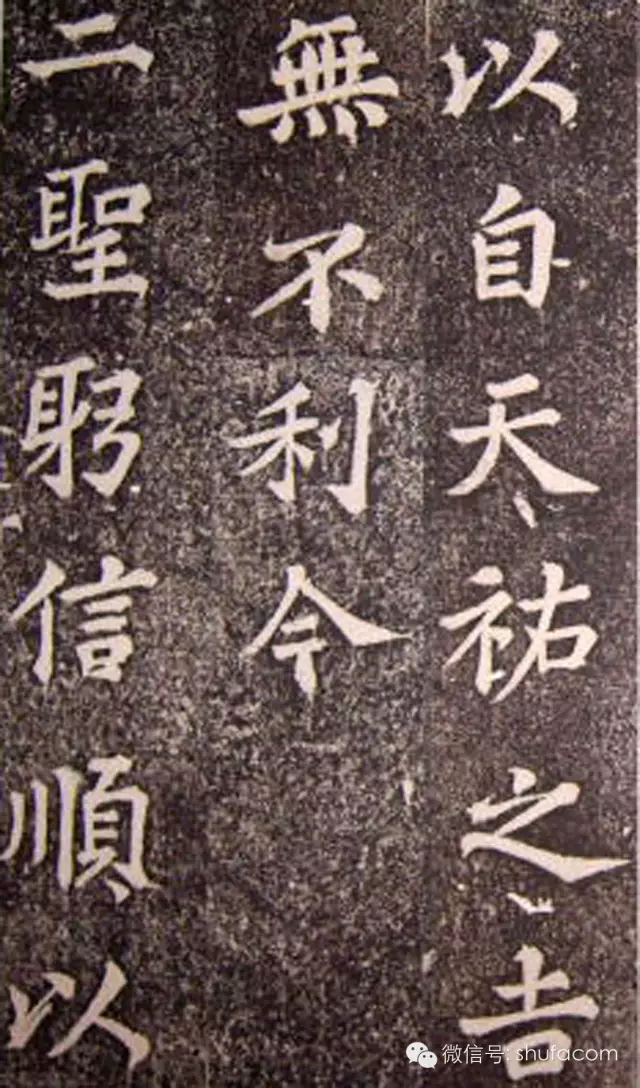 以自天祐之吉
無不利今
二聖躬信順以
微信号: shufacom